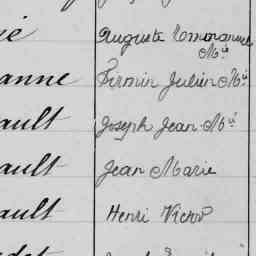 ié Auguste Emmanuel
Mie
anne Firmin Julien Mie
ault Joseph Jean Mie
ault Jean Marie
ault Henri Victor